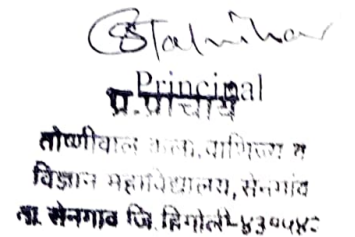 Principal
प्र.प्राचार्य
तोष्णीवाल कला, वाणिज्य व
विज्ञान महाविद्यालय, सेनगांव
ता. सेनगाव जि. हिंगोली-४३१५४२